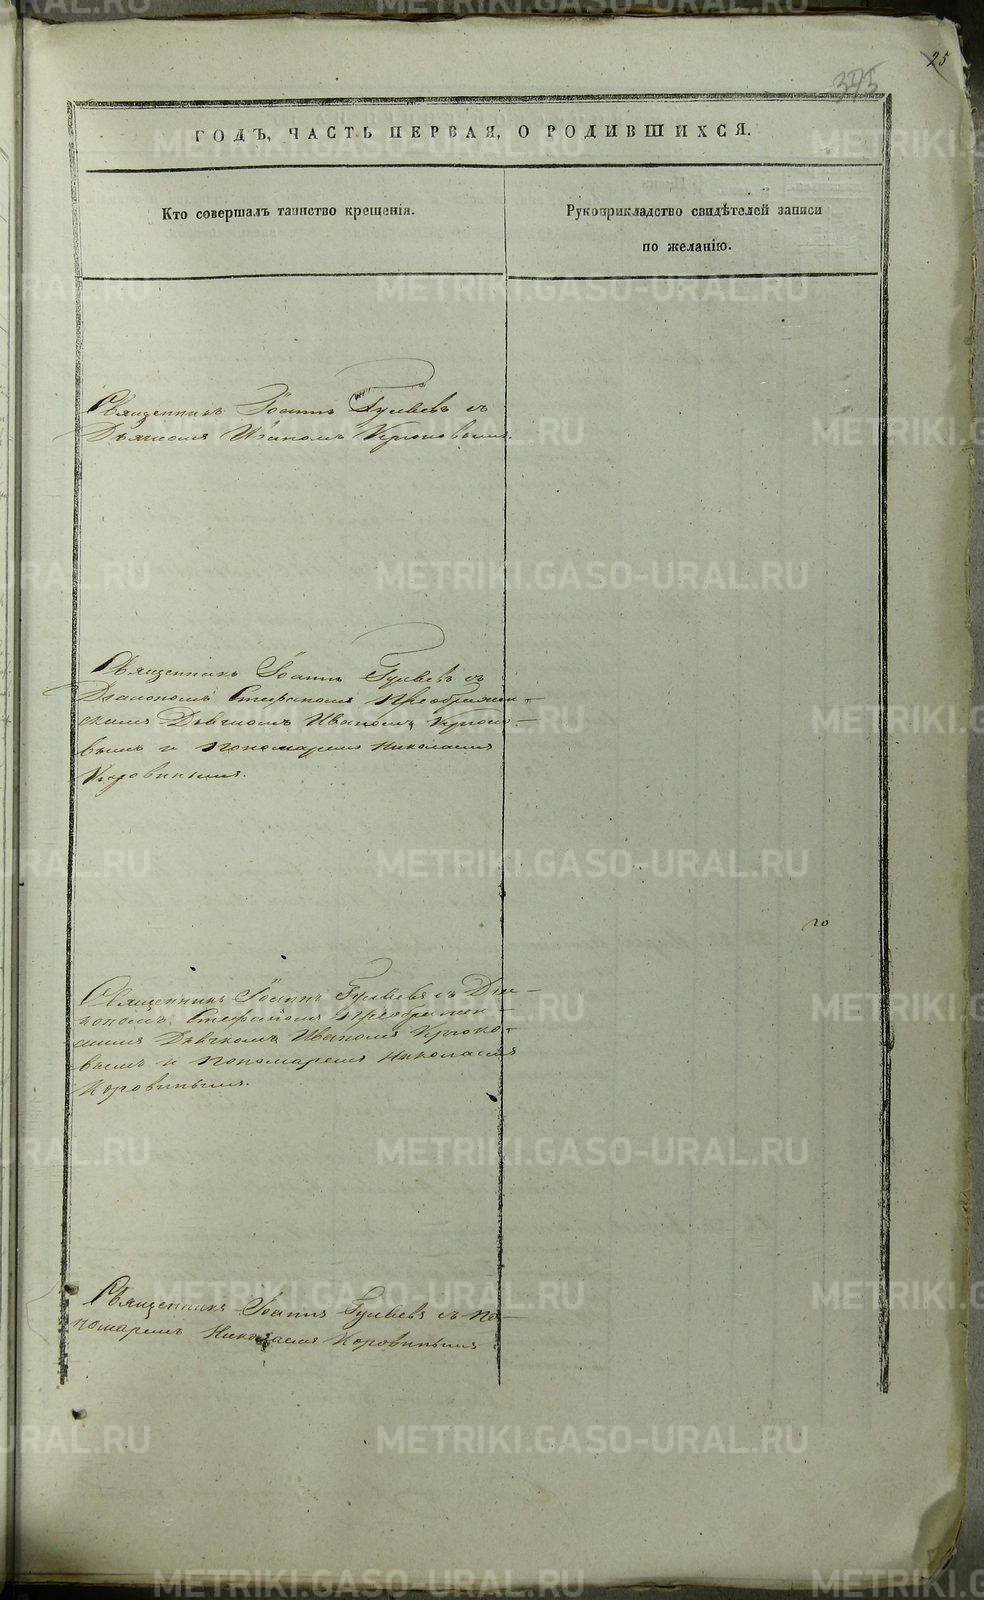 25
375
ГОДЪ, ЧАСТЬ ПЕРВАЯ, О РОДИВШИХСЯ.
Кто совершалъ таинство крещенія.
Рукоприкладство свидѣтелей записи
по желанію.
Священникъ Іоаннъ Гуляевъ съ
Дьячкомъ Иваномъ Крюковымъ.
Священникъ Іоаннъ Гуляевъ съ
Діакономъ Стефаномъ Преображен-
скимъ Дьячкомъ Иваномъ Крюко-
вымъ и пономаремъ Николаемъ
Коровинымъ.
Священникъ Іоаннъ Гуляевъ съ Діа-
кономъ Стефаномъ Преображен-
скимъ Дьячкомъ Иваномъ Крюко-
вымъ и пономаремъ Николаемъ
Коровинымъ.
Священникъ Іоаннъ Гуляевъ съ по-
номаремъ Николаемъ Коровинымъ
METRIKI.GASO-URAL.RU